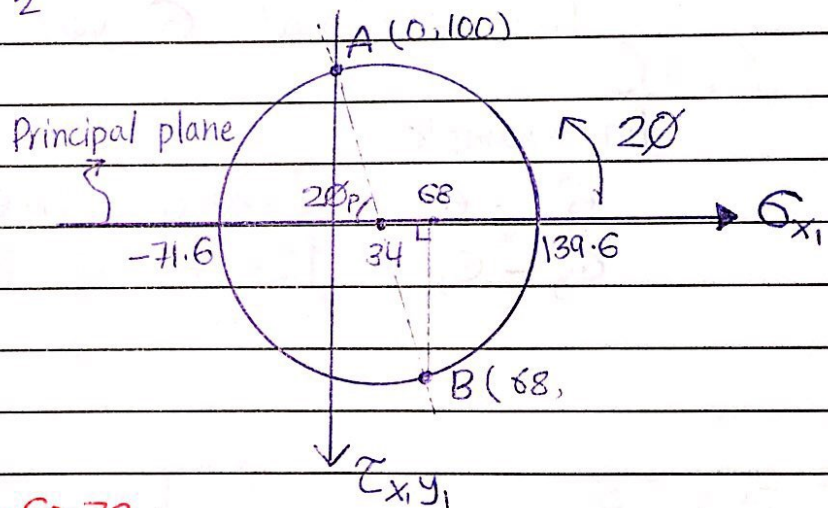 2
A (0,100)
Principal plane
2Ø
2Øp
68
σx₁
-71.6
34
139.6
B (68,
τx₁y₁